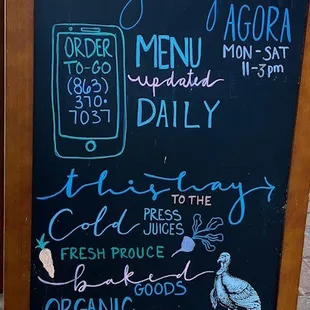 AGORA
MON-SAT
11-3pm
ORDER
TO-GO
(863)
370-
7037
MENU
updated
DAILY
this way
TO THE
Cold PRESS
JUICES
FRESH PROUCE
baked
GOODS
ORGANIC